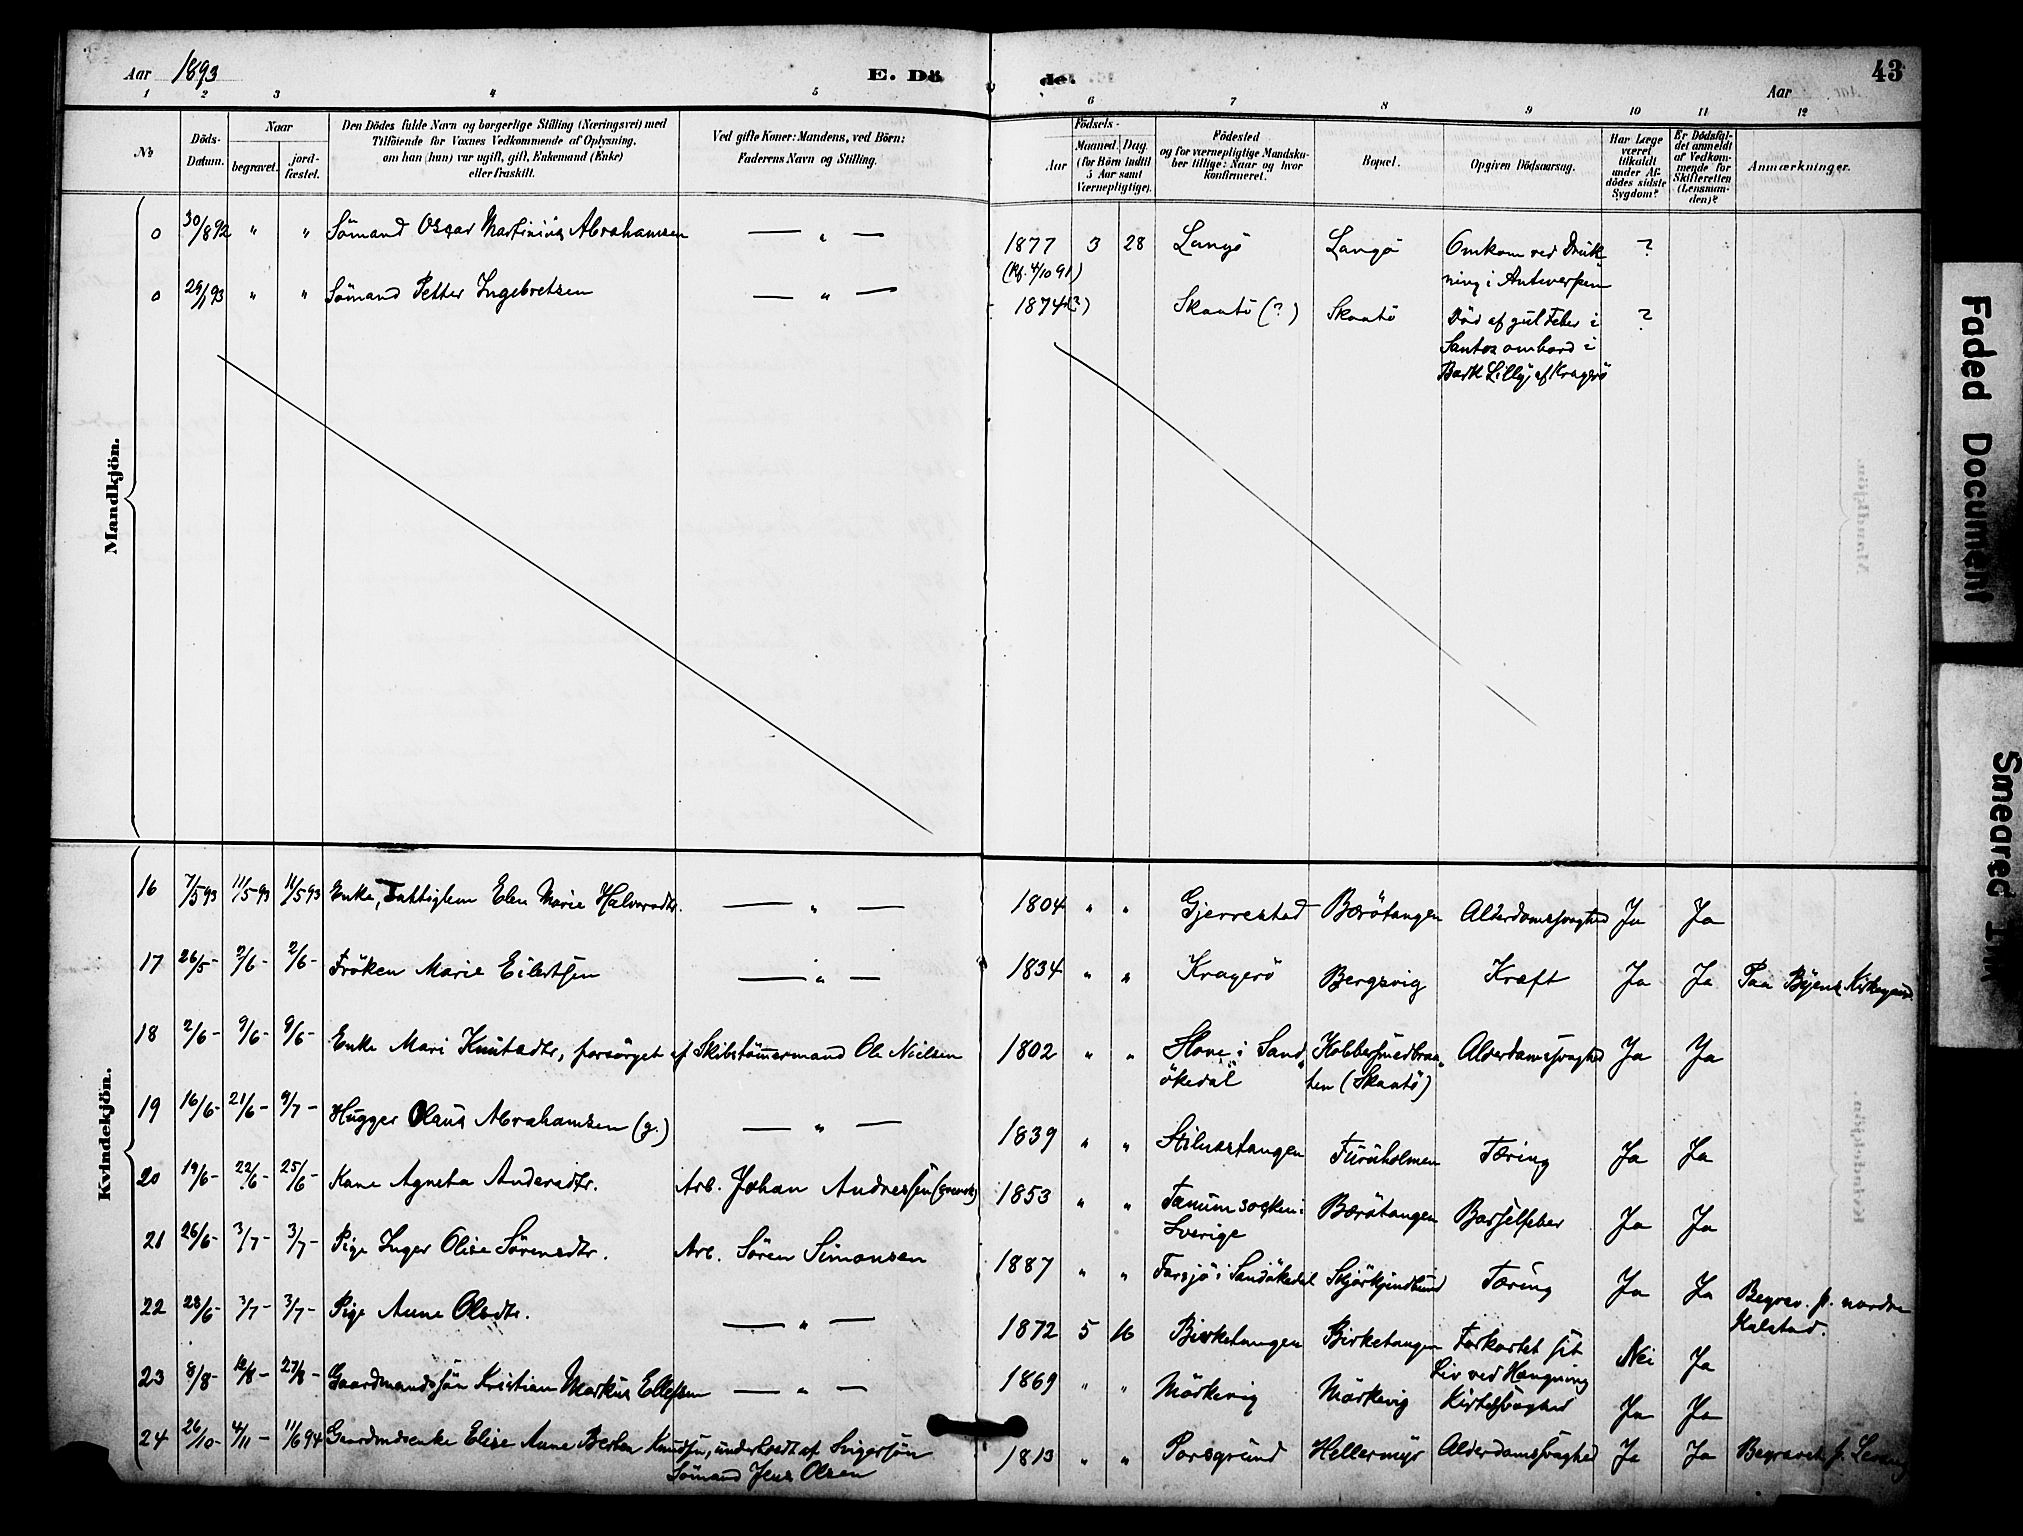 Aar 1893
E. Dö
de.
Aar
43
1 2 3 4 5 6 7 8 9 10 11 12
No
Döds-
Datum.
Naar
begravet.
jord-
fæstet.
Den Dödes fulde Navn og borgerlige Stilling (Næringsvei) med
Tilföiende for Voxnes Vedkommende af Oplysning,
om han (hun) var ugift, gift, Enkemand (Enke)
eller fraskilt.
Ved gifte Koner: Mandens, ved Börn:
Faderens Navn og Stilling.
Födsels-
Aar
Maaned.
Dag.
(for Börn indtil
5 Aar samt
Værnepligtige).
Födested
og for værnepligtige Mandska-
ber tillige: Naar og hvor
konfirmeret.
Bopæl.
Opgiven Dödsaarsag.
Har Læge
været
tilkaldt
under Af-
dödes sidste
Sygdom?
Er Dödsfal-
det anmeldt
af Vedkom-
mende for
Skifteretten
(Lensman-
den)?
Anmærkninger.
Mandkjön.
0 30/8 92 " " Sömand Oscar Martinius Abrahamsen — " — 1877 3 28 Langö Langö Omkom ved Druk- ?
(Kf. 4/10 91) ning i Antwerpen
0 29/1 93 " " Sömand Petter Ingebretsen — " — 1874 (?) Skaatö (?) Skaatö Död af gul Feber i ?
Santos ombord i
Bark Lilly af Kragerö
Kvindekjön.
16 7/5 93 11/5 93 11/5 93 Enke, Fattiglem Elen Marie Halvorsdtr. — " — 1804 " " Gjerrestad Bærötangen Alderdomssvaghed Ja Ja
17 26/5 - 2/6 - 2/6 - Fröken Marie Eilertsen — " — 1834 " " Kragerö Bergsvig Kræft Ja Ja Paa Byens Kirkegaard
18 2/6 - 9/6 - 9/6 - Enke Mari Knutsdtr, forsörget af Skibstömmermand Ole Nielsen 1802 " " Slone i Sand Kobbersmedbraa Alderdomssvaghed Ja Ja
ökedal ten (Skaatö)
19 16/6 - 21/6 - 9/7 - Hugger Olaus Abrahamsen (g.) — " — 1839 " " Stilnestangen Furuholmen Tæring Ja Ja
20 19/6 - 22/6 - 25/6 - Kone Agneta Andersdtr. Arb. Johan Andressen (svensk) 1853 " " Tanum socken i Bærötangen Barselfeber Ja Ja
Sverige
21 26/6 - 3/7 - 3/7 - Pige Inger Olise Sörensdtr. Arb. Sören Simonsen 1887 " " Farsjö i Sandökedal Tæring Ja Ja
22 28/6 - 3/7 - 3/7 - Pige Anne Olsdtr. — " — 1872 5 16 Birketangen Birketangen Forkortet sit Nei Ja Begrav. p. nordre
Liv ved Hængning Kalstad.
23 8/8 - 12/8 - 27/8 - Gaardmandssön Kristian Markus Ellefsen — " — 1869 " " Mörkevig Mörkevig Kirtelsvaghed Ja Ja
24 26/10 - 4/11 - 11/6 94 Gaardmdsenke Elise Anne Berthe Knudsen, underholdt af Svigersön 1813 " " Porsgrund Hellermyr Alderdomssvaghed Ja Ja Begravet p. Levang
Sömand Jens Olsen
Faded Document
Smeared Ink